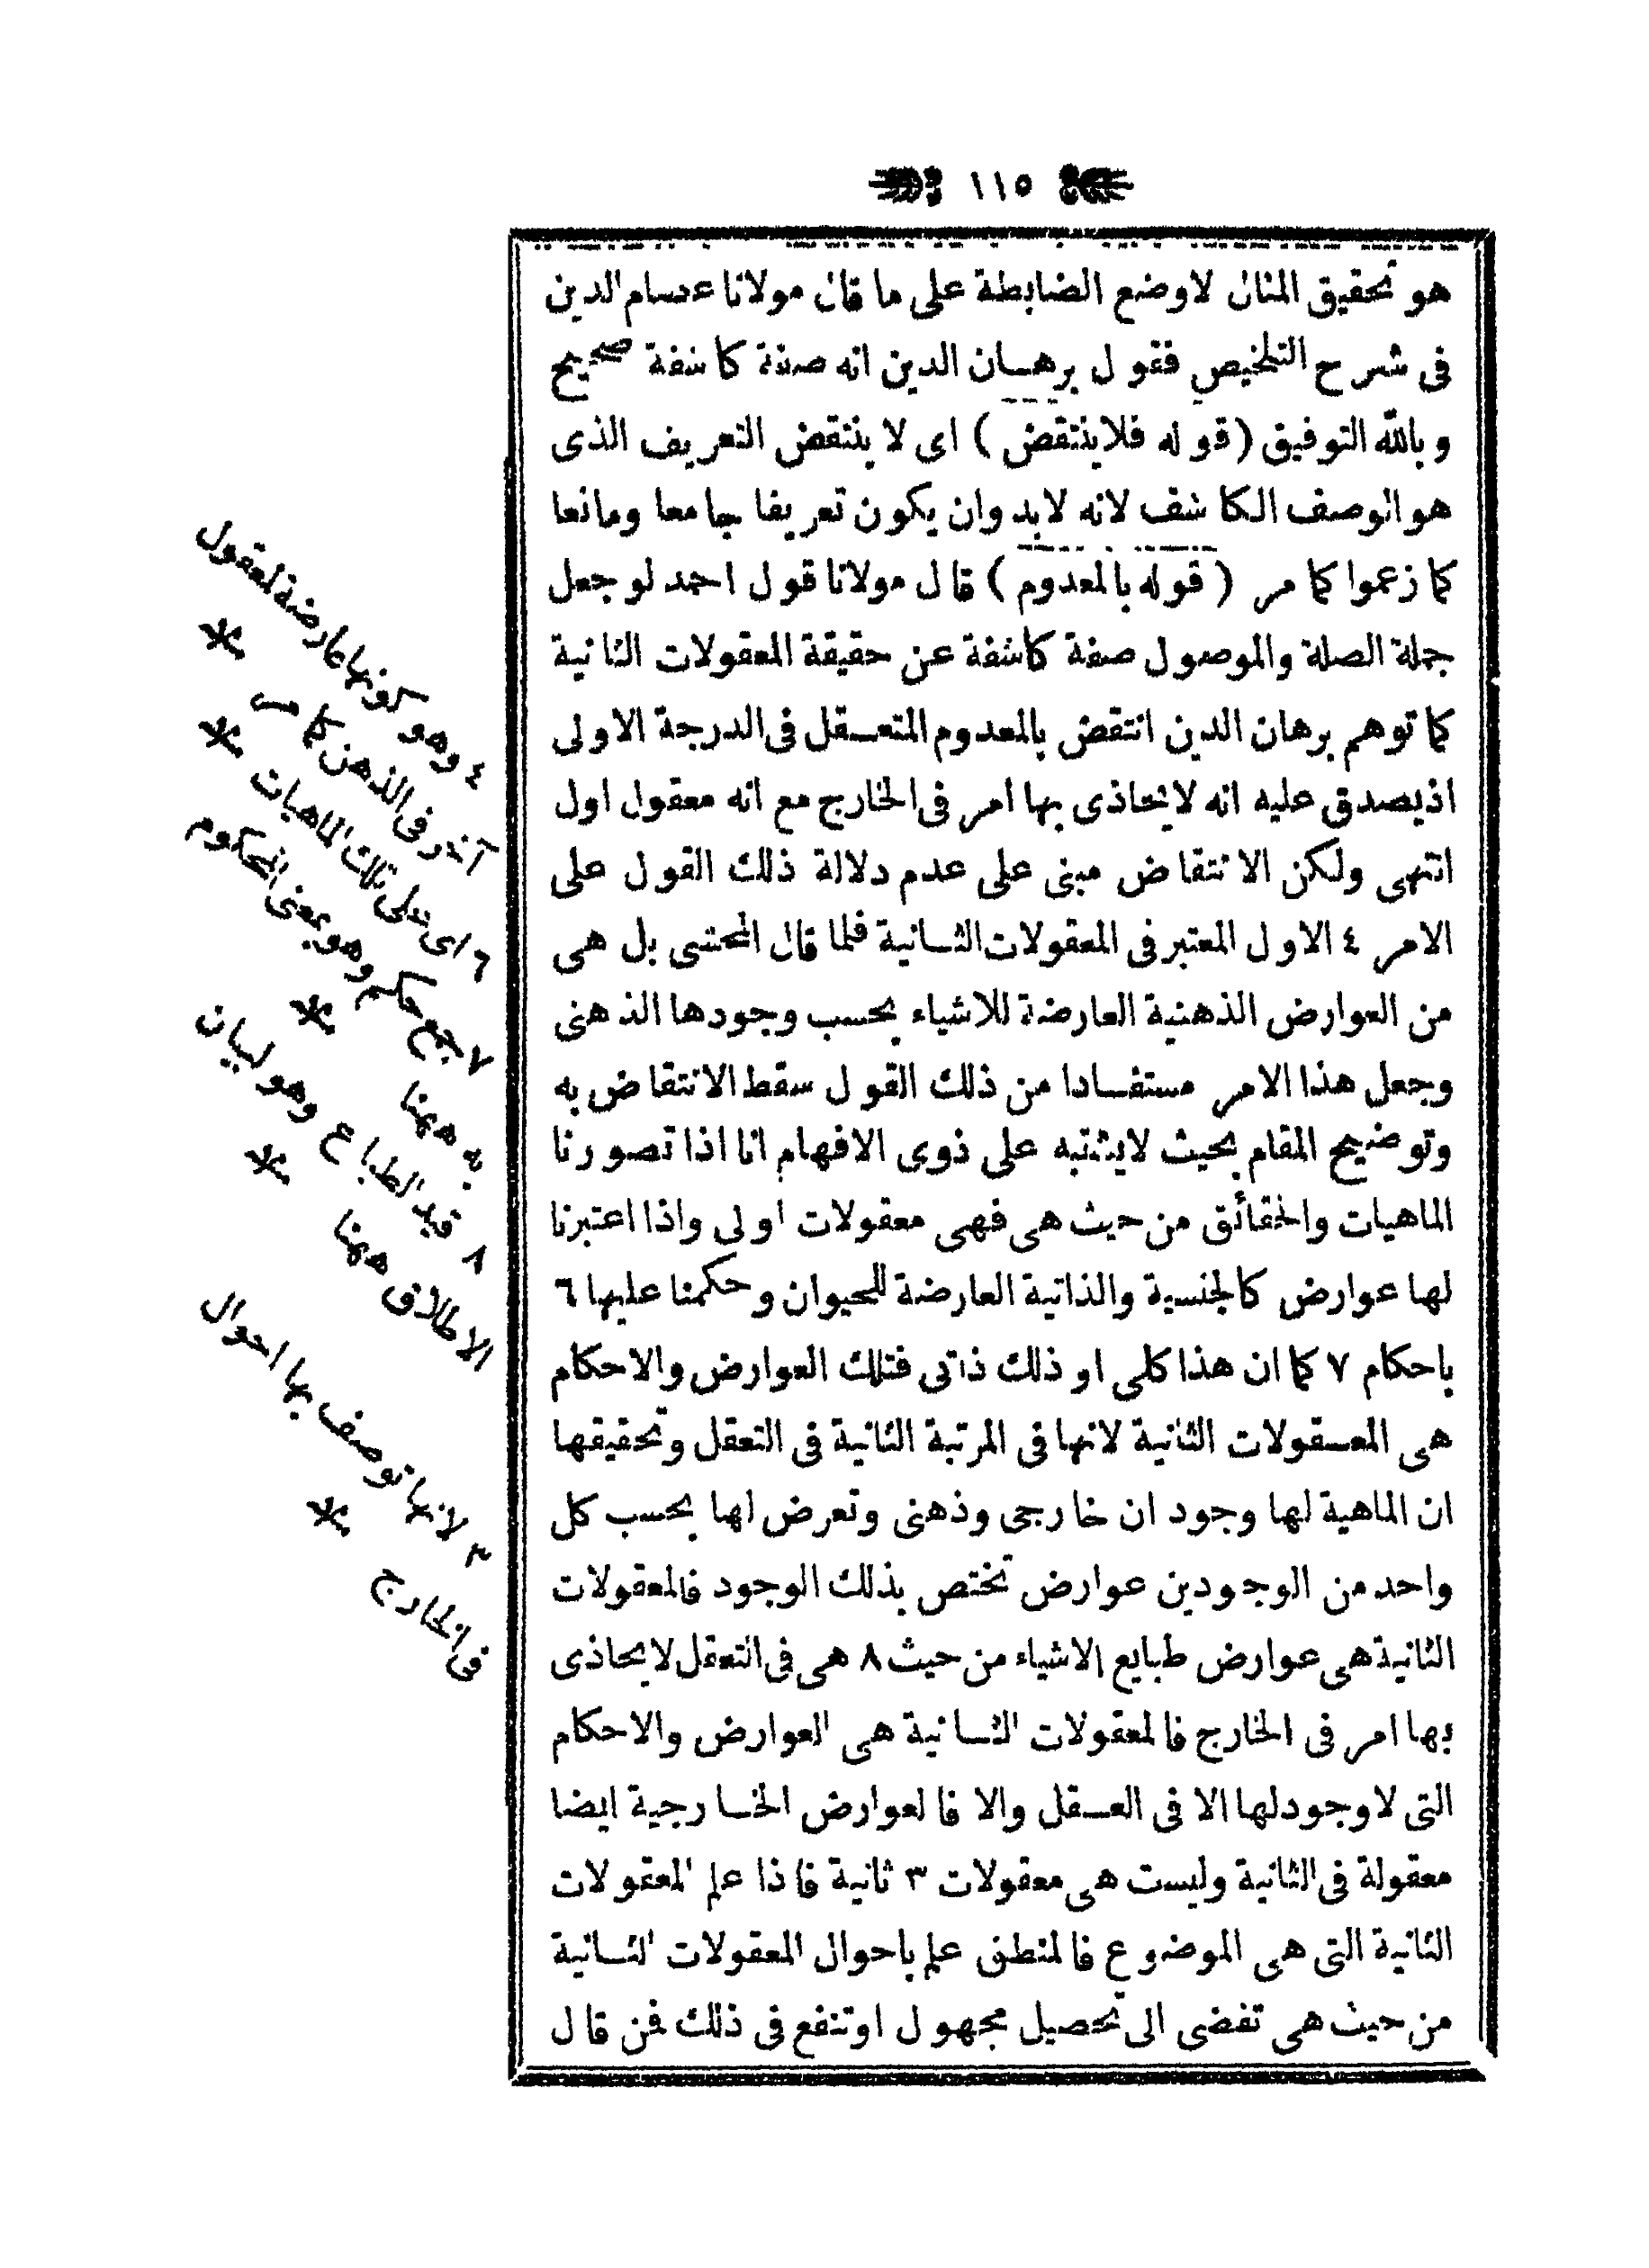 ١١٥
هو تحقيق المثال لاوضع الضابطة على ما قال مولانا عصام الدين
فى شرح التلخيص فقول برهان الدين انه صفة كاشفة صحيح
وبالله التوفيق (قوله فلاينتقض) اى لا ينتقض التعريف الذى
هو الوصف الكاشف لانه لابد وان يكون تعريفا جامعا ومانعا
كما زعموا كما مر (قوله بالمعدوم) قال مولانا قول احمد لو جعل
جملة الصلة والموصول صفة كاشفة عن حقيقة المعقولات الثانية
كما توهم برهان الدين انتقض بالمعدوم المتعقل فى الدرجة الاولى
اذيصدق عليه انه لا يحاذى بها امر فى الخارج مع انه معقول اول
انتهى ولكن الانتقاض مبنى على عدم دلالة ذلك القول على
الامر ٤ الاول المعتبر فى المعقولات الثانية فلما قال المحشى بل هى
من العوارض الذهنية العارضة للاشياء بحسب وجودها الذهنى
وجعل هذا الامر مستفادا من ذلك القول سقط الانتقاض به
وتوضيح المقام بحيث لايشتبه على ذوى الافهام انا اذا تصورنا
الماهيات والحقائق من حيث هى فهى معقولات اولى واذا اعتبرنا
لها عوارض كالجنسية والذاتية العارضة للحيوان وحكمنا عليها ٦
باحكام ٧ كما ان هذا كلى او ذلك ذاتى فتلك العوارض والاحكام
هى المعقولات الثانية لانها فى المرتبة الثانية فى التعقل وتحقيقها
ان الماهية لها وجود ان خارجى وذهنى وتعرض لها بحسب كل
واحد من الوجودين عوارض تختص بذلك الوجود فالمعقولات
الثانية هى عوارض طبايع الاشياء من حيث ٨ هى فى التعقل لا يحاذى
بها امر فى الخارج فالمعقولات الثانية هى العوارض والاحكام
التى لا وجود لها الا فى العقل والا فالعوارض الخارجية ايضا
معقولة فى الثانية وليست هى معقولات ٣ ثانية فاذا علم المعقولات
الثانية التى هى الموضوع فالمنطق علم باحوال المعقولات الثانية
من حيث هى تفضى الى تحصيل مجهول او تنفع فى ذلك فمن قال
٤ وهو كونها عارضة لمعقول
آخر فى الذهن كما مر
٦ اى على تلك الماهيات
٧ جمع حكم وهو بمعنى المحكوم
به ههنا
٨ قيد الطباع وهو لبيان
الاطلاق ههنا
٣ لانها توصف بها احوال
فى الخارج